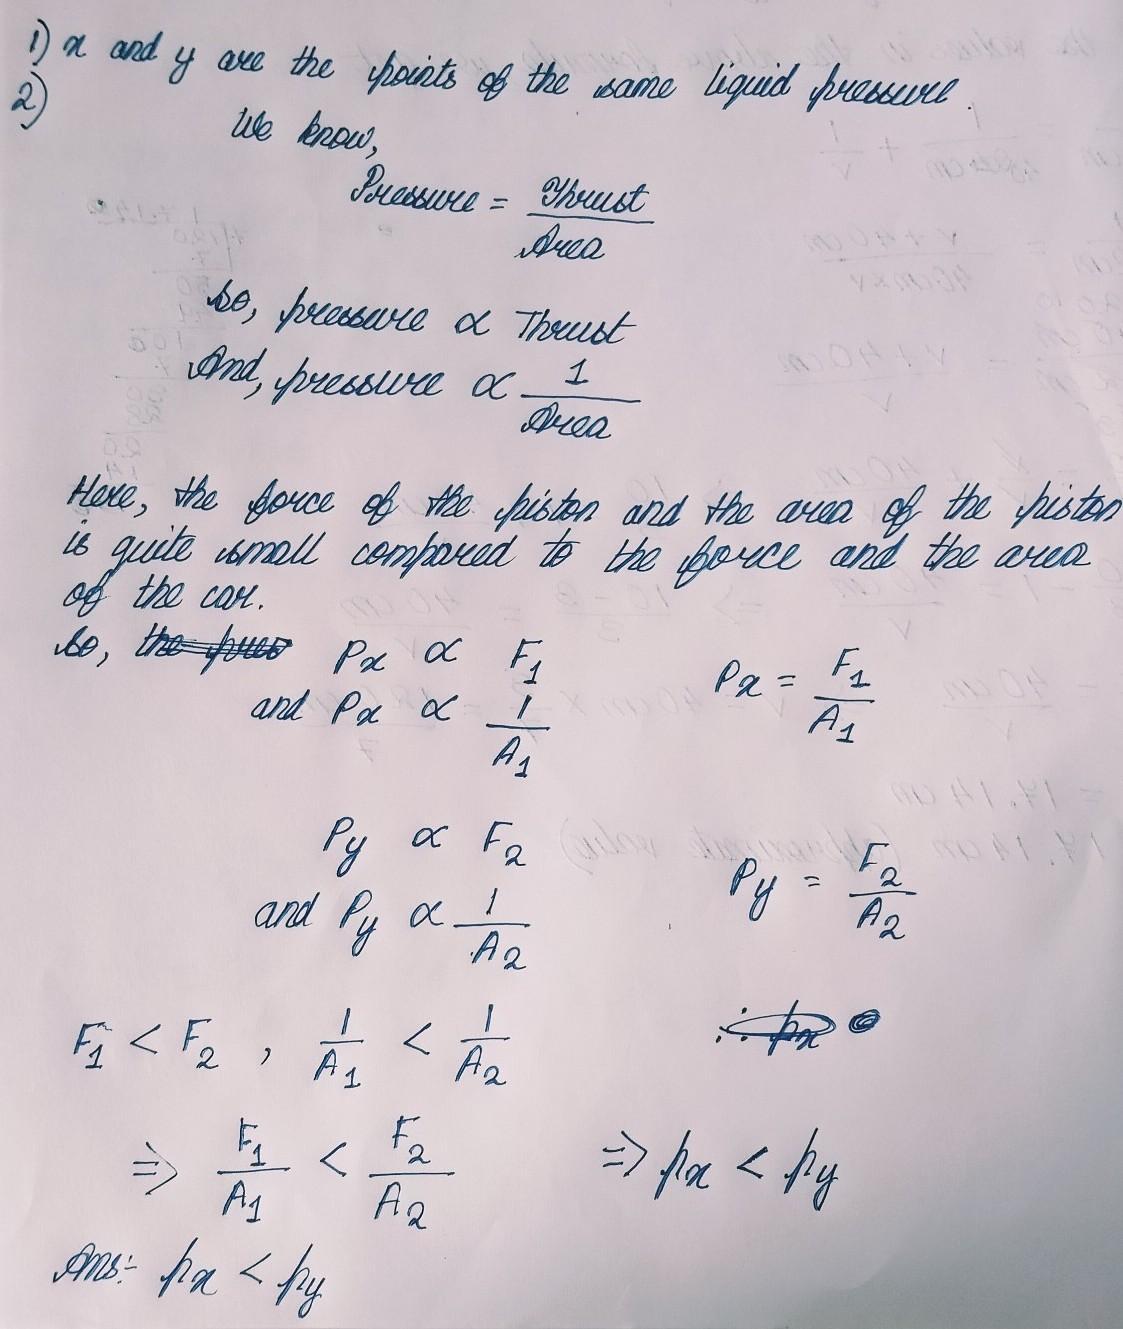 1) x and y are the points of the same liquid pressure.
2)
We know,
Pressure = Thrust / Area
So, pressure ∝ Thrust
And, pressure ∝ 1 / Area
Here, the force of the piston and the area of the piston
is quite small compared to the force and the area
of the car.
So, Px ∝ F1
Px = F1 / A1
and Px ∝ 1 / A1
Py ∝ F2
Py = F2 / A2
and Py ∝ 1 / A2
F1 < F2 , 1 / A1 < 1 / A2
⇒ F1 / A1 < F2 / A2 ⇒ px < py
Ans:- px < py